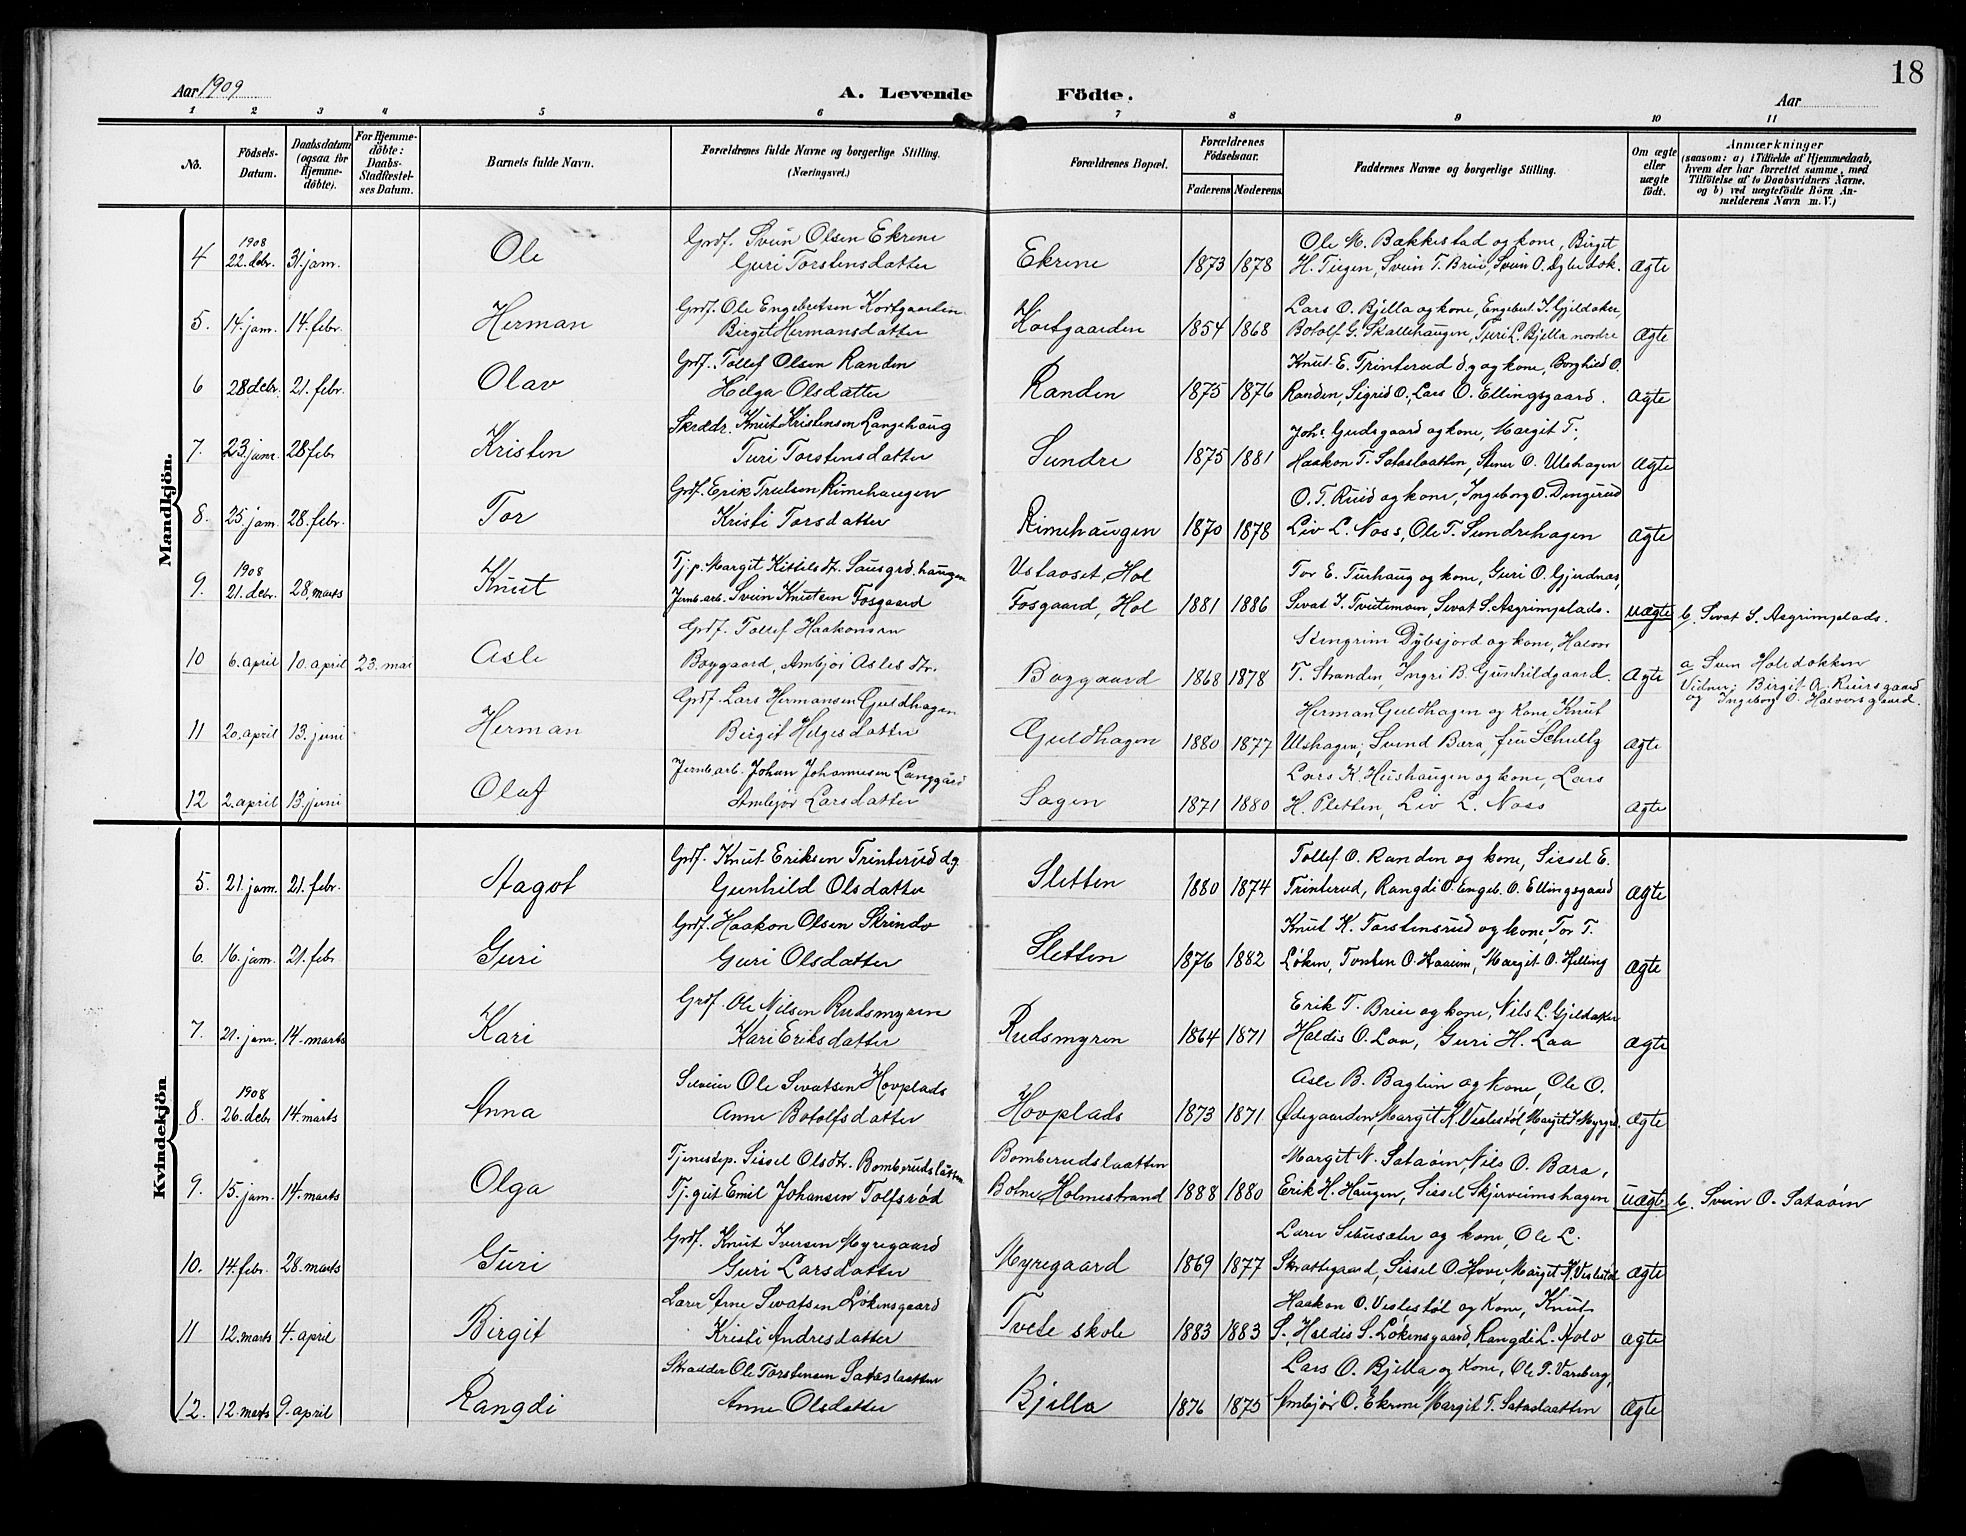 18
Aar 1909
A. Levende Födte.
Aar
1 2 3 4 5 6 7 8 9 10 11
No.
Födsels-Datum.
Daabsdatum (ogsaa for Hjemmedöbte).
For Hjemmedöbte: Daabs-Stadfæstelses Datum.
Barnets fulde Navn.
Forældrenes fulde Navne og borgerlige Stilling. (Næringsvei.)
Forældrenes Bopæl.
Forældrenes Födselsaar.
Faderens Moderens
Faddernes Navne og borgerlige Stilling.
Om ægte eller uægte födt.
Anmærkninger
(saasom: a) i Tilfælde af Hjemmedaab, hvem der har forrettet samme, med Tilföielse af to Daabsvidners Navne, og b) ved uægtefödte Börn Anmelderens Navn m. V.)
Mandkjön.
4 1908 22. debr. 31. jam. Ole Grdf. Svein Olsen Ekrene Guri Torstensdatter Ekrene 1873 1878 Ole M. Bakkestad og kone, Birget H. Tiegen, Svein T. Brui, Svein O. Ægte
5. 14. jam. 14. febr. Herman Grdf. Ole Engebretsen Kortgaarden Birgit Hermansdatter Kortgaarden 1854 1868 Lars O. Bjella og kone, Engebret T. Gjeldaker, Botolf G. Skallehaugen, Turi L. Bjella nordre Ægte
6 28 debr. 21. febr. Olav Grdf. Tollef Olsen Randen Helga Olsdatter Randen 1875 1876 Knut E. Trinterud d.y og kone, Borghild O. Randen, Sigrid O., Lars O. Ellingsgaard. Ægte
7. 23. janr. 28 febr Kristen Skrædr. Knut Kristensen Langehaug Turi Torstensdatter Sundre 1875 1881 Johs. Gudsgaard og kone, Margit T., Haakon T. Sataslaatten, Stener O. Ulshagen Ægte
8. 25. jam. 28. febr. Tor Grdf. Erik Trulsen Rimehaugen Kristi Torsdatter Rimehaugen 1870 1878 O. T. Ruud og kone, Ingeborg O. Dengerud Liv L. Noss, Ole T. Sundrehagen Ægte
9. 1908 21. debr. 28. marts Knut Tj.p. Margit Kittilsdtr. Sausgrd.haugen Jernb.arb. Svein Knutsen Fosgaard Ustaoset, Hol Fosgaard, Hol 1881 1886 Tor E. Turhaug og kone, Guri O. Gjerdnas, Sevat T. Tveitemoin, Sevat S. Asgrimsplads. Uægte b. Sevat S. Asgrimsplads.
10 6. april 10. april 23. mai Asle Grdf. Tollef Haakonsen Boygaard, Ambjør Aslesdtr. Boygaard 1868 1878 Stengrim Dybsjord og kone, Halvor T. Stranden, Ingri B. Gunhildgaard. Ægte a. Svein Holsdokken Vidner: Birgit A. Ruersgaard og Ingeborg O. Halvorsgaard.
11 20. april 13. juni Herman Grdf. Lars Hermansen Guldhagen Birgit Helgesdatter Guldhagen 1880 1877 Herman Guldhagen og kone, Knut Ulshagen, Svend Bæra, fru Schultz Ægte
12 2. april 13. juni Olaf Jernb.arb. Johan Johannesen Langgård Ambjør Larsdatter Hagen 1871 1880 Lars K. Hushaugen og kone, Lars H. Pletten, Liv L. Noss Ægte
Kvindekjön
5. 21. jam. 21. febr. Aagot Grdf. Knut Eriksen Trinterud d.y. Gunhild Olsdatter Sletten 1880 1874 Tollef O. Randen og kone, Sissel E. Trinterud, Rangdi O. Engeb. O. Ellingsgaard Ægte
6. 16. jam. 21. febr Guri Grdf. Haakon Olsen Skrindo Guri Olsdatter Sletten 1876 1882 Knut K. Torstensrud og kone, Tor T. Løken, Torsten O. Haaum, Margit O. Helling Ægte
7. 21. janr. 14. marts Kari Grdf. Ole Nilsen Rudsmyren Kari Eriksdatter Rudsmyren 1864 1871 Erik T. Brui og kone, Nils L. Gjeldaker Haldis O. Laa, Guri H. Laa Ægte
8. 1908 26. debr 14. marts Anna Ole Sevatsen Hovplads Anne Botolfsdatter Hovplads 1873 1871 Asle B. Baglun og kone, Ole O. Ødegaarden, Margit K. Veslestøl, Ægte
9. 15. jam. 14. marts Olga Tjenestep. Sissel Olsdtr. Bomberudslåtten Tj.gut Emil Johansen Tolfsrød Bomberudslaatten Botne Holmestrand 1888 1880 Margit N. Sataøin, Nils O. Bæra, Erik H. Haugen, Sissel Skjerveimshagen Uægte b. Svein O. Sataøin
10. 14. febr. 28. marts Guri Grdf. Knut Iversen Myregaard Guri Larsdatter Myregaard 1869 1877 Lærer Sebusæter og kone, Ole L. Skrattegaard, Sissel O. Hove, Margit K. Veslestøl Ægte
11 12. marts 4. april Birgit Lærer Arne Sevatsen Løkensgaard Kristi Andresdatter Tveto skole 1883 1883 Haakon O. Veslestøl og kone, Knut S., Haldis S. Løkensgaard, Rangdi L. Holo Ægte
12. 12. marts 9. april Rangdi Skrædder Ole Torstensen Sataslaatten Anne Olsdatter Bjella 1876 1875 Lars O. Bjella og kone, Ole P. Vareberg, Ambjør O. Ekrene, Margit T. Sataslaatten Ægte